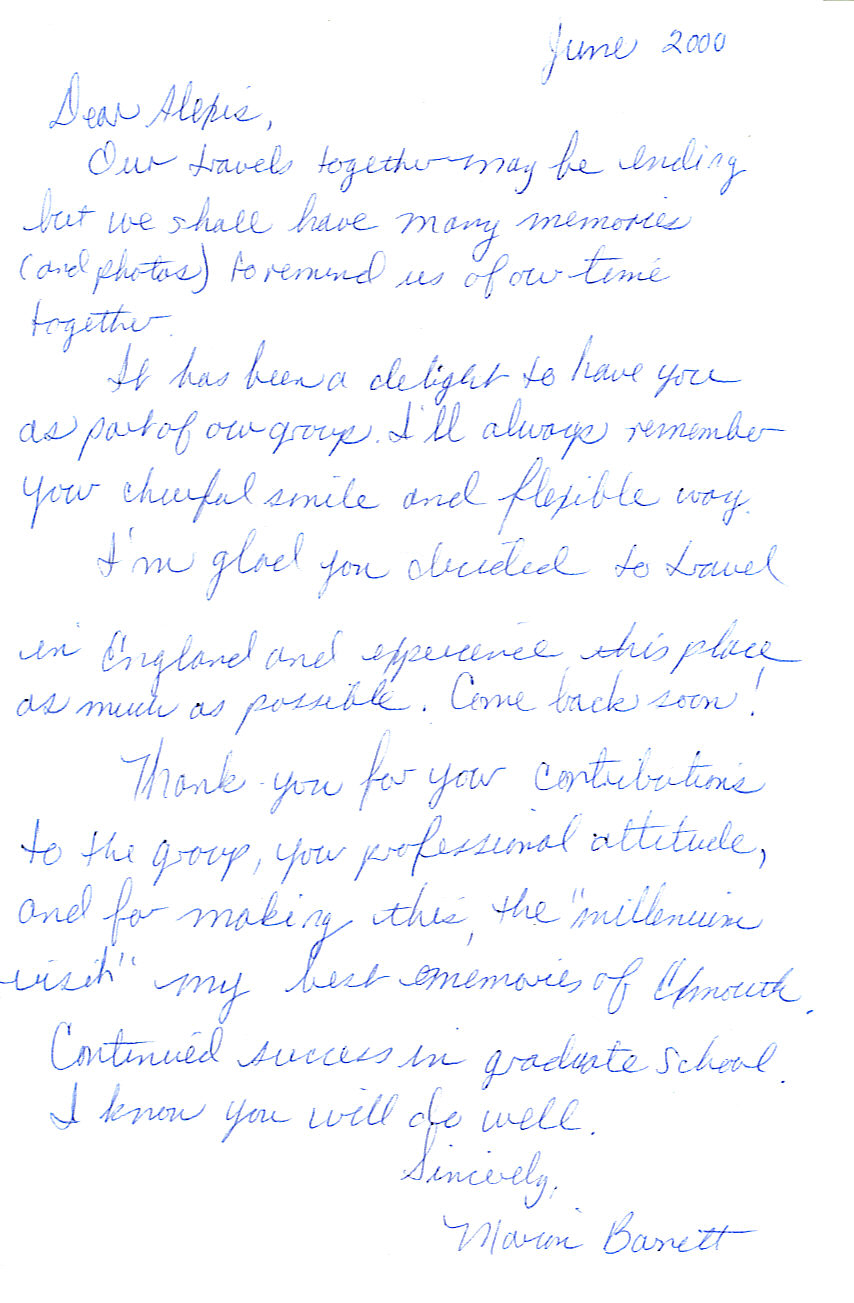 June 2000
Dear Alexis,
Our travels together may be ending
but we shall have many memories
(and photos) to remind us of our time
together.
It has been a delight to have you
as part of our group. I'll always remember
your cheerful smile and flexible way.
I'm glad you decided to travel
in England and experience this place
as much as possible. Come back soon!
Thank-you for your contributions
to the group, your professional attitude,
and for making this, the "millenium
visit" my best memories of Exmouth.
Continued success in graduate school.
I know you will do well.
Sincerely,
Barrett